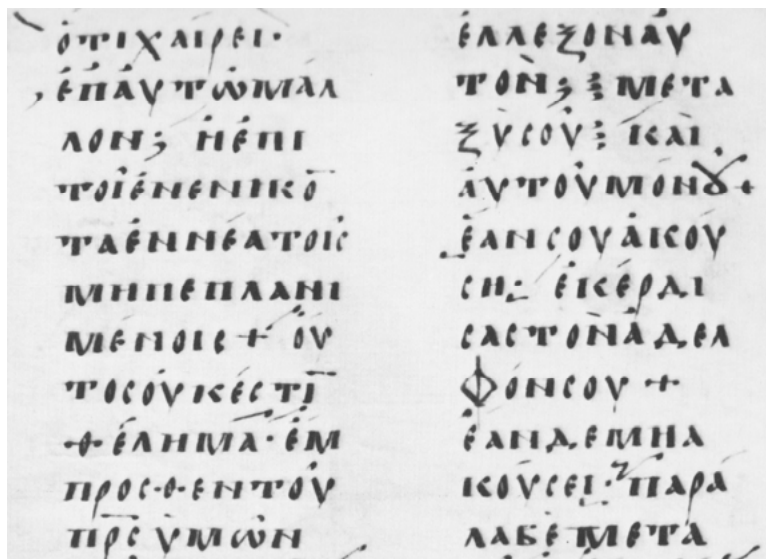 ὁτιχαιρει·
ἐπἀυτὼμαλ
λον; ἠέπι
τοῖἐνενικο̄
ταἐννέατοις
μηπεπλανι
μένοις + ὁυ
τοσουκέστῑ
θέλημα· ἐμ
προσθεντοῦ
πρ̅ςὑμῶν
ἐλλεξοναὐ
τὸν; ⁝ μετα
ξυσοῦ ⁝ καὶ
ἀυτοῦμόνȣ +
ἐανσουἀκού
ση; ἐκέρδι
σαςτὸνἀδελ
φόνσου +
ἐανδεμηα
κούσει· παρά
λαβε μετὰ